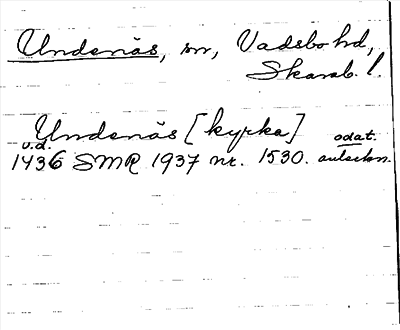 Undenäs, sn, Vadsbo hd,
Skarab. l.
Undenäs [kyrka]
u.d. odat.
1436 SMR 1937 nr. 1530. anteckn.